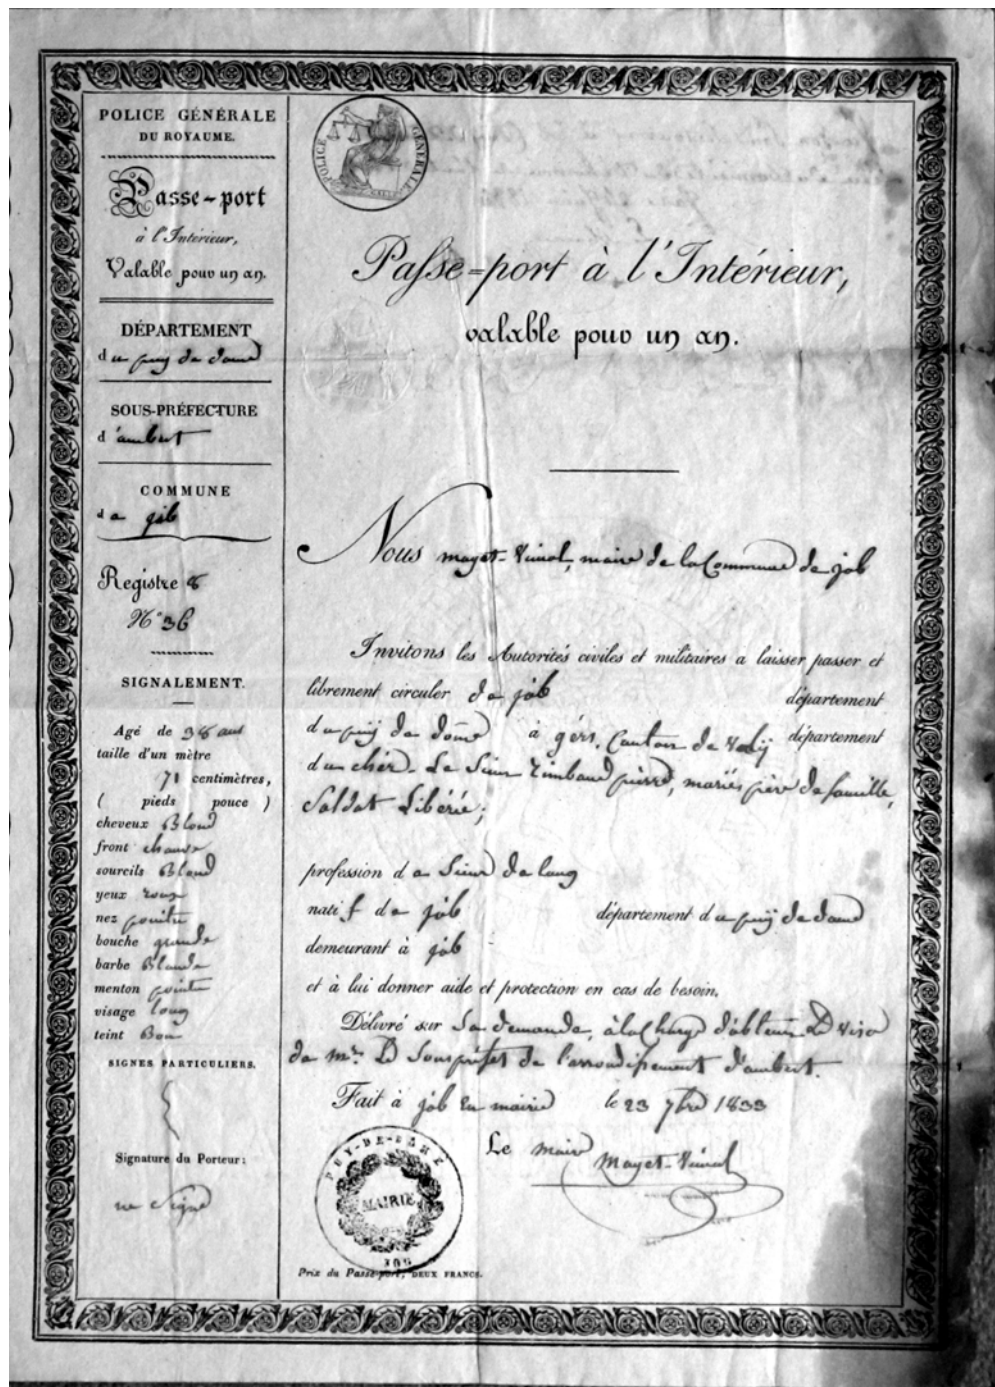 POLICE GÉNÉRALE
DU ROYAUME.
Passe-port
à l'Intérieur,
Valable pour un an.
DÉPARTEMENT
du puy de dome
SOUS-PRÉFECTURE
d'ambert
COMMUNE
de job
Registre 8
N° 36
SIGNALEMENT.
Agé de 38 ans
taille d'un mètre
71 centimètres,
( pieds pouce )
cheveux Blond
front chauve
sourcils Blond
yeux roux
nez pointu
bouche grande
barbe Blonde
menton pointu
visage long
teint Bon
SIGNES PARTICULIERS.
Signature du Porteur:
ne Signe
POLICE GÉNÉRALE
Passe-port à l'Intérieur,
valable pour un an.
Nous mayet-Vimal, maire de la Commune de job
Invitons les Autorités civiles et militaires a laisser passer et
librement circuler de job département
du puy de dome à gérs, Canton de département
du chér. Le Sieur pierre, mariés père de famille,
Soldat Libérié;
profession de Sieur de long
natif de job département du puy de dome
demeurant à job
et à lui donner aide et protection en cas de besoin.
Délivré sur Sa demande, à la Charge d'obtenir Le Visa
de mr. Le Sous préfet de l'arrondissement d'ambert.
Fait à job En mairie le 23 7bre 1833
Le maire
Mayet-Vimal
PUY-DE-DÔME
MAIRIE
JOB
Prix du Passe-port, DEUX FRANCS.